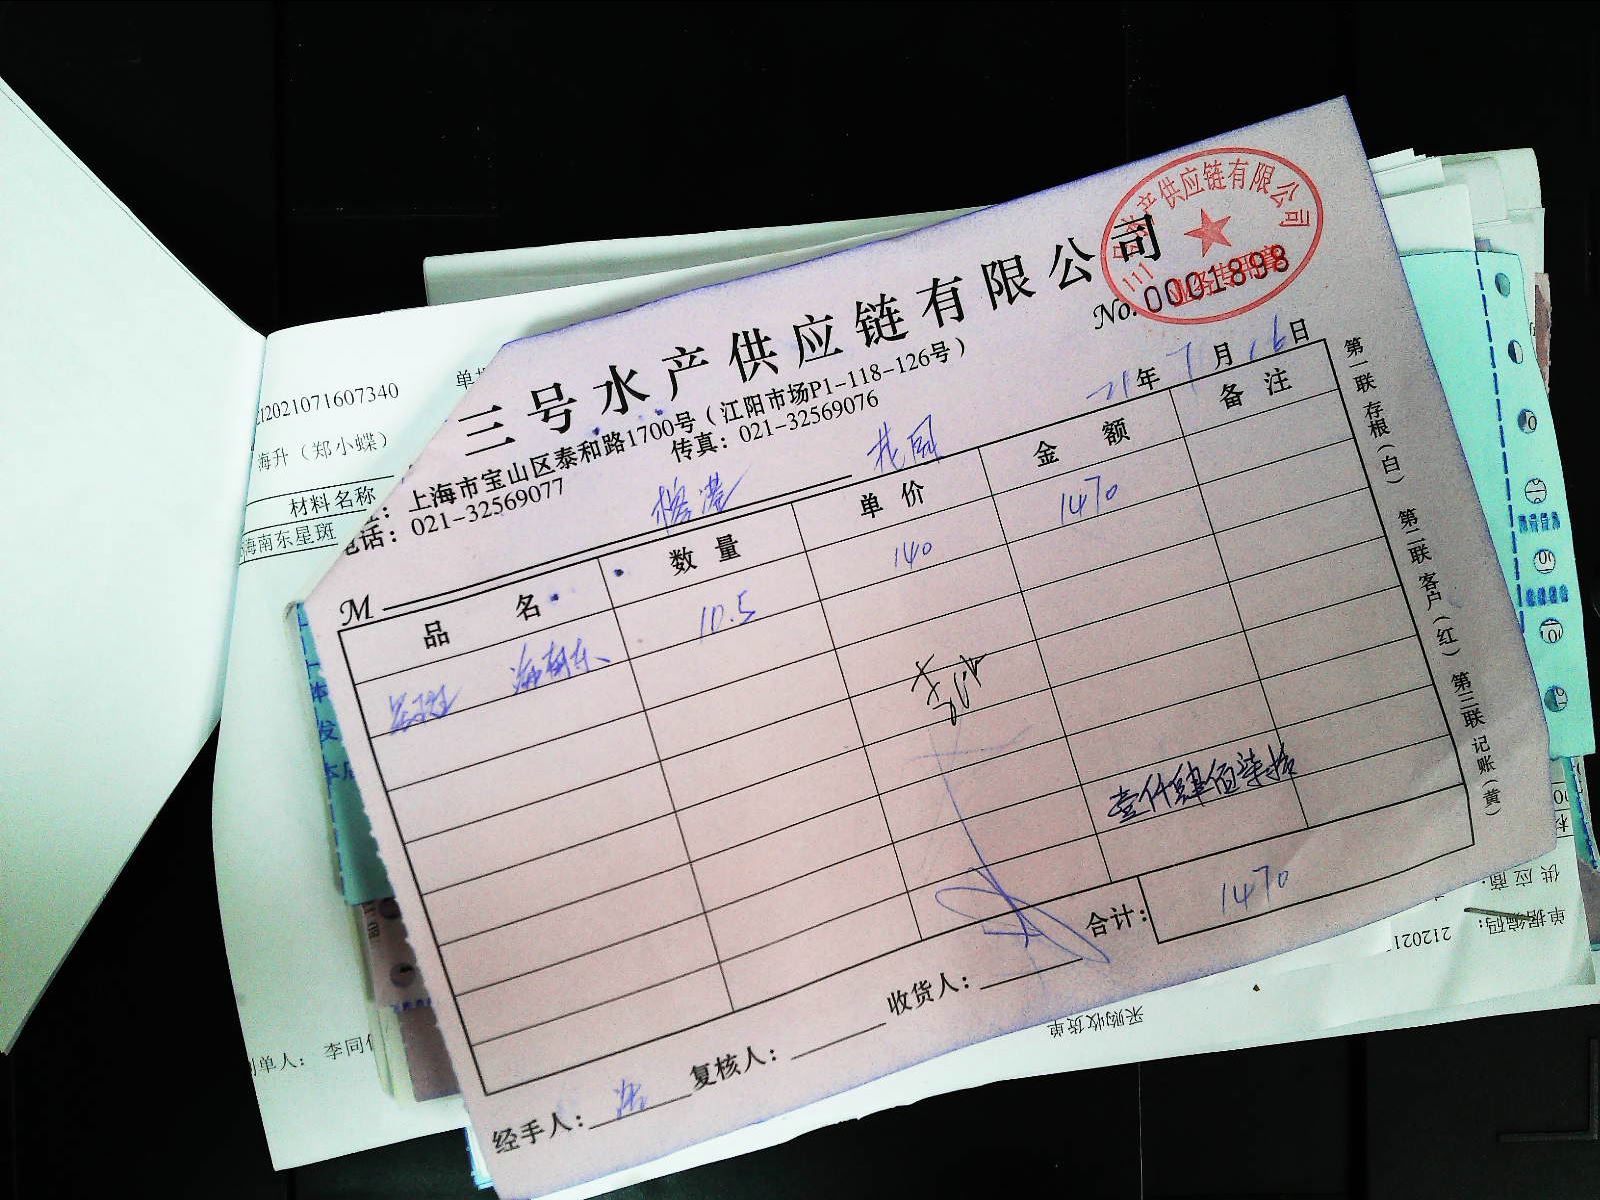 三号水产供应链有限公司
No. 0001898
水产供应链有限公司
业务专用章
上海市宝山区泰和路1700号（江阳市场P1-118-126号）
电话：021-32569077 传真：021-32569076
21年7月16日
M
品名 数量 单价 金额 备注
星斑 海南东 10.5 140 1470
壹仟肆佰柒拾
合计： 1470
经手人： 复核人： 收货人：
第一联 存根（白） 第二联 客户（红） 第三联 记账（黄）
2021071607340
海升（郑小蝶）
材料名称
海南东星斑
制单人： 李同
采购收货单
单据编码： 212021
供应商：